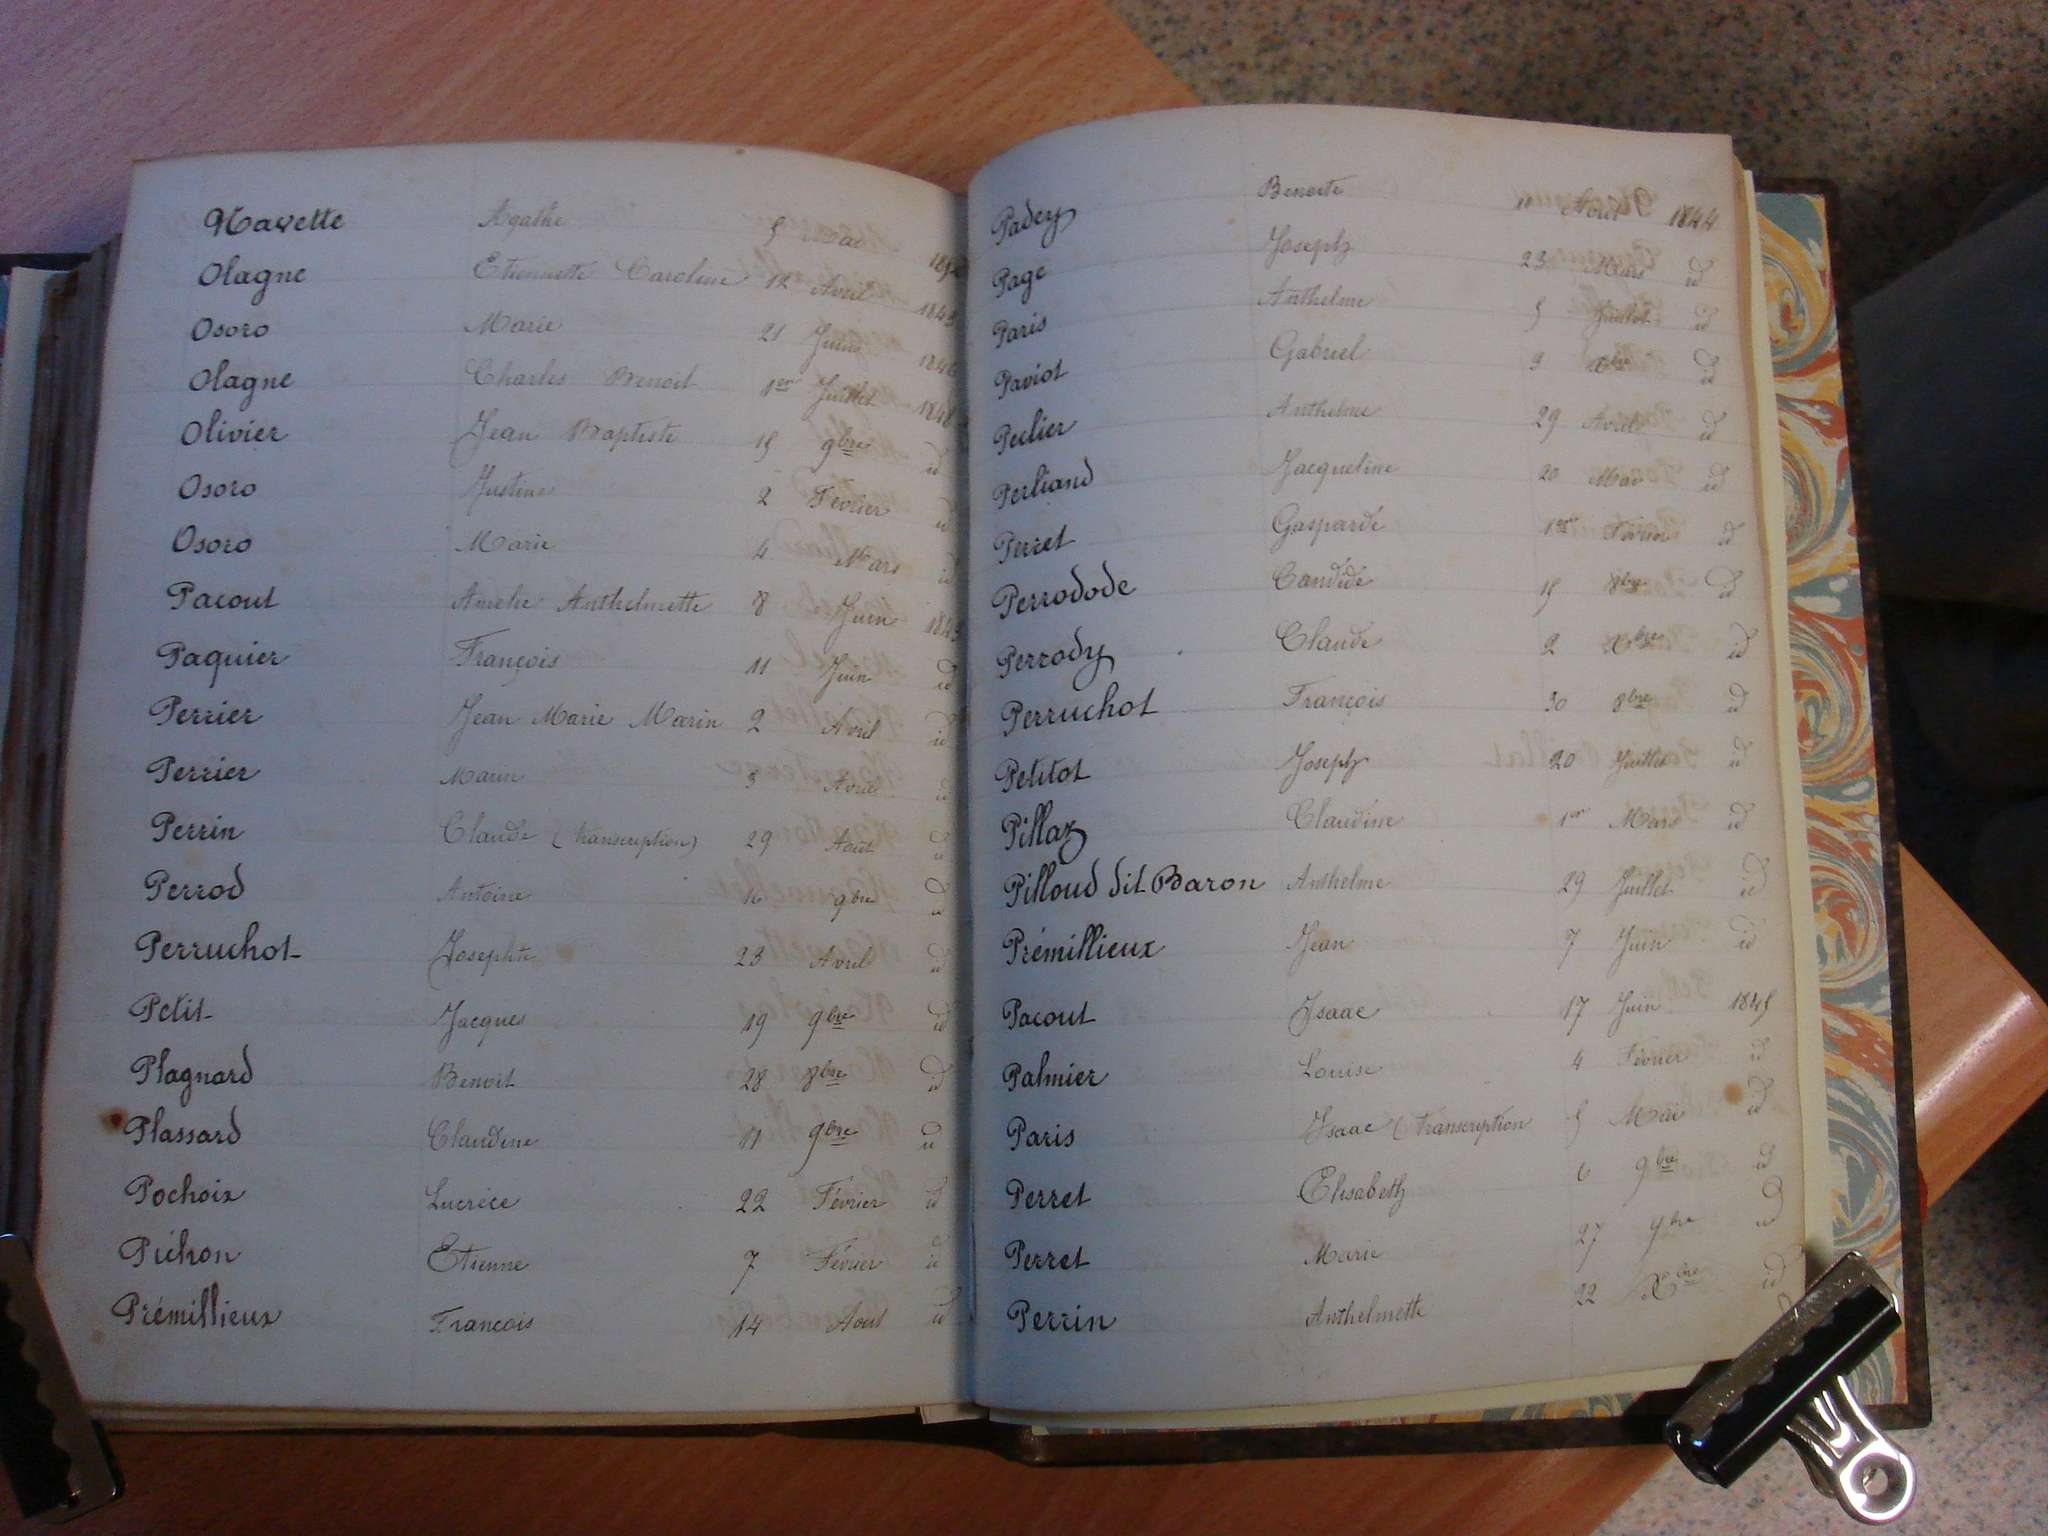 Navette Agathe 5 Mai
Olagne Etiennette Caroline 12 Avril 1843
Osoro Marie 21 Juin 1846
Olagne Charles Benoit 1er Juillet 1848
Olivier Jean Baptiste 15 9bre id
Osoro Justine 2 Février id
Osoro Marie 4 Mars id
Pacout Amélie Anthelmette 8 Juin 1843
Paquier François 11 Juin id
Perrier Jean Marie Marin 2 Avril id
Perrier Marin 3 Avril id
Perrin Claude (transcription) 29 Août id
Perrod Antoine 16 9bre id
Perruchot Josephte 23 Avril id
Petit Jacques 19 9bre id
Plagnard Benoit 28 8bre id
Plassard Claudine 11 9bre id
Pochoix Lucrèce 22 Février id
Pichon Etienne 7 Février id
Prémillieux François 14 Aout id
Padey Benoite 11 Aout 1844
Page Joseph 23 Mars id
Paris Anthelme 5 Juillet id
Paviot Gabriel 9 Xbre id
Peclier Anthelme 29 Avril id
Perliand Jacqueline 20 Mai id
Perret Gasparde 1er Février id
Perrodode Candide 15 8bre id
Perrody Claude 2 Xbre id
Perruchot François 30 8bre id
Petitot Joseph 20 Juillet id
Pillaz Claudine 1er Mars id
Pilloud dit Baron Anthelme 29 Juillet id
Prémillieux Jean 7 Juin id
Pacout Isaac 17 Juin 1845
Palmier Louise 4 Février id
Paris Isaac (transcription 5 Mai id
Perret Elisabeth 6 9bre id
Perret Marie 27 9bre id
Perrin Anthelmette 22 Xbre id